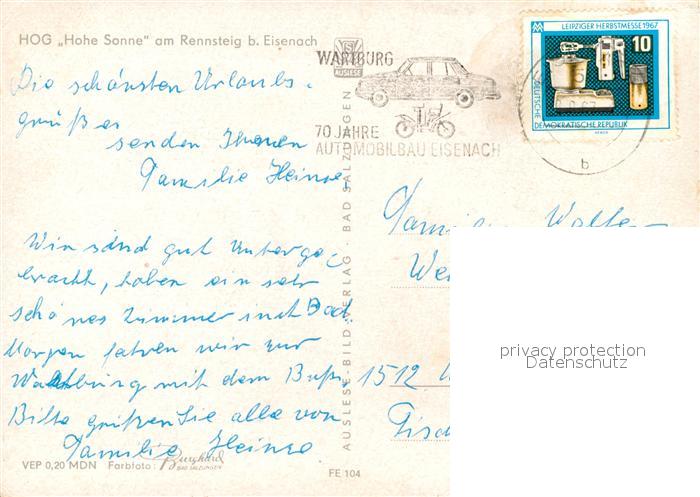 HOG „Hohe Sonne" am Rennsteig b. Eisenach
WARTBURG
AUSLESE
70 JAHRE
AUTOMOBILBAU EISENACH
LEIPZIGER HERBSTMESSE 1967
10
DEUTSCHE
DEMOKRATISCHE REPUBLIK
b
Die schönsten Urlaubs-
grüße
senden Ihnen
Familie Heinse
Wir sind gut unterge-
bracht, haben ein sehr
schönes Zimmer mit Bad.
Morgen fahren wir zur
Wartburg mit dem Bus.
Bitte grüßen Sie alle von
Familie Heinse
Familie Walter
We
1512 W
Fisch
AUSLESE-BILD-VERLAG · BAD SALZUNGEN
privacy protection
Datenschutz
VEP 0,20 MDN Farbfoto: Burghard
BAD SALZUNGEN
FE 104